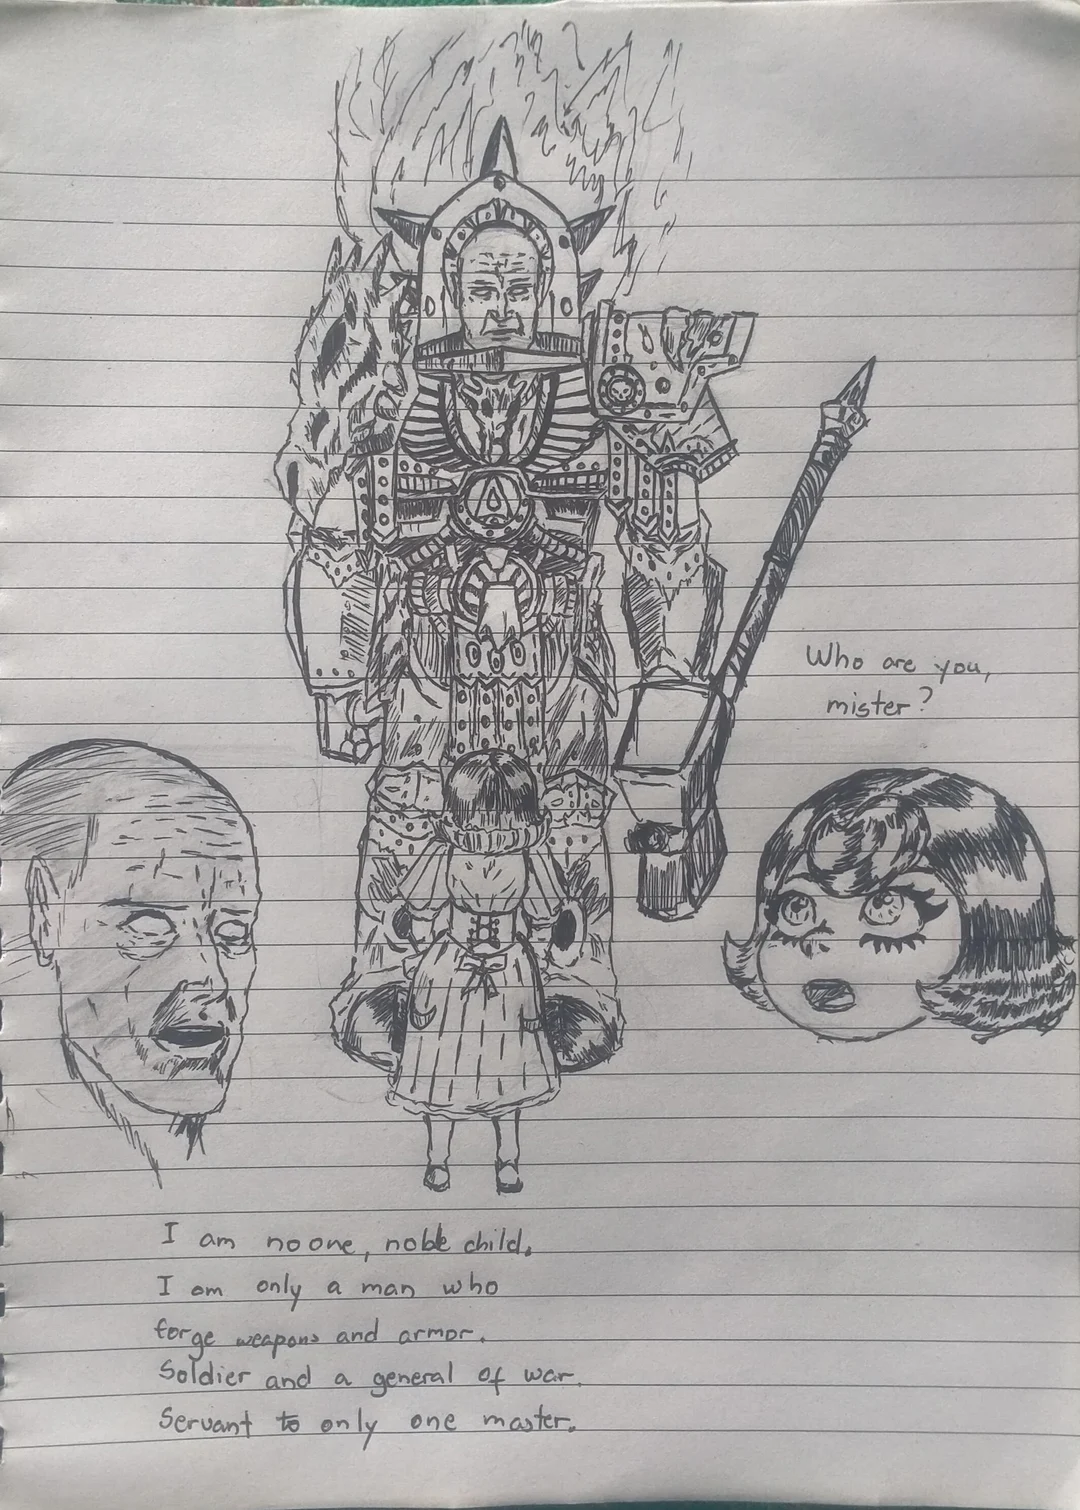 Who are you,
mister?
I am no one, noble child.
I am only a man who
forge weapons and armor.
Soldier and a general of war.
Servant to only one master.